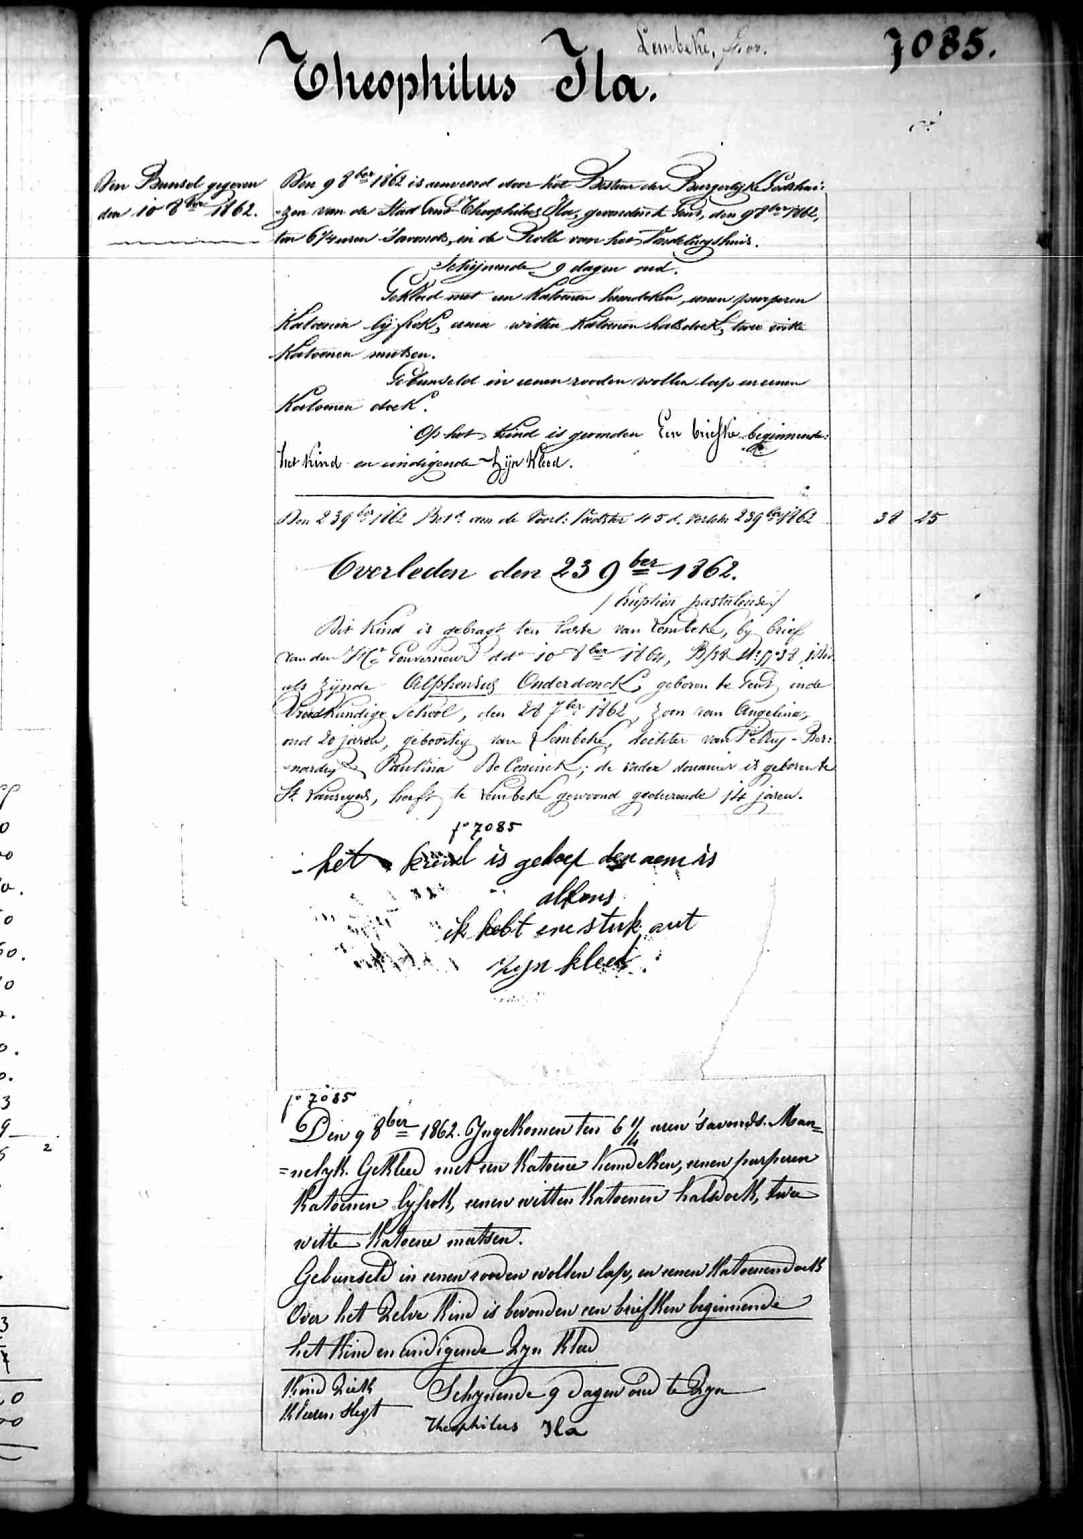 Lembeke, Foo.
7085.
Theophilus Ila.
Den Bunsel gegeven
den 10 8ber 1862.
Den 9 8ber 1862 is aenveerd door het Bestuur der Burgerlyke Godshui-
-zen van de Stad Gend Theophilus Ila, gevonden te Gent, den 9 8ber 1862,
ten 6 1/4 uren 's avonds, in de Rolle van het Vondelingshuis.
Schijnende 9 dagen oud.
Gekleed met een Katoenen hemdeken, eenen purperen
Katoenen lijfrok, eenen witten Katoenen halsdoek, twee witte
Katoenen mutsen.
Gebunseld in eenen rooden wollen lap en eenen
Katoenen doek.
Op het Kind is gevonden Een briefke beginnende:
het Kind en eindigende Zijn Kleed.
Den 23 9ber 1862 Bet. aen de Voed: 45 d. 23 9ber 1862 38 25
Overleden den 23 9ber 1862.
(Eruption pustuleuse)
Dit Kind is gebragt ten laste van Lembeke, by brief
van den Hr Gouverneur dd. 10 8ber 1864,
als zijnde Alphonsus Onderdonck, geboren te Gent, in de
Vroedkundige School, den 28 7ber 1862, zoon van Angelina,
oud 20 jaren, geboortig van Lembeke, dochter van Petrus-Ber-
nardus, Paulina De Coninck; de vader is geboren te
St. Laureyns, heeft te Lembeke gewoond gedurende 14 jaren.
fo 7085
het kind is gedoep den aem is
alfons
ik hebt ene stuk aut
zyn kleed.
fo 7085
Den 9 8ber 1862. Ingekomen ten 6 1/4 uren 's avonds. Man=
=nelyk. Gekleed met een Katoene hemdeken, eenen purperen
Katoenen lyfrok, eenen witten Katoenen halsdoek, twee
witte Katoene mutsen.
Gebunseld in eenen rooden wollen lap, en eenen Katoenen doek
Over het Zelve Kind is bevonden een briefken beginnende
het Kind en eindigende Zyn Kleed
Kind Ziek
Kleeren Slegt
Schynende 9 dagen oud te Zyn
Theophilus Ila